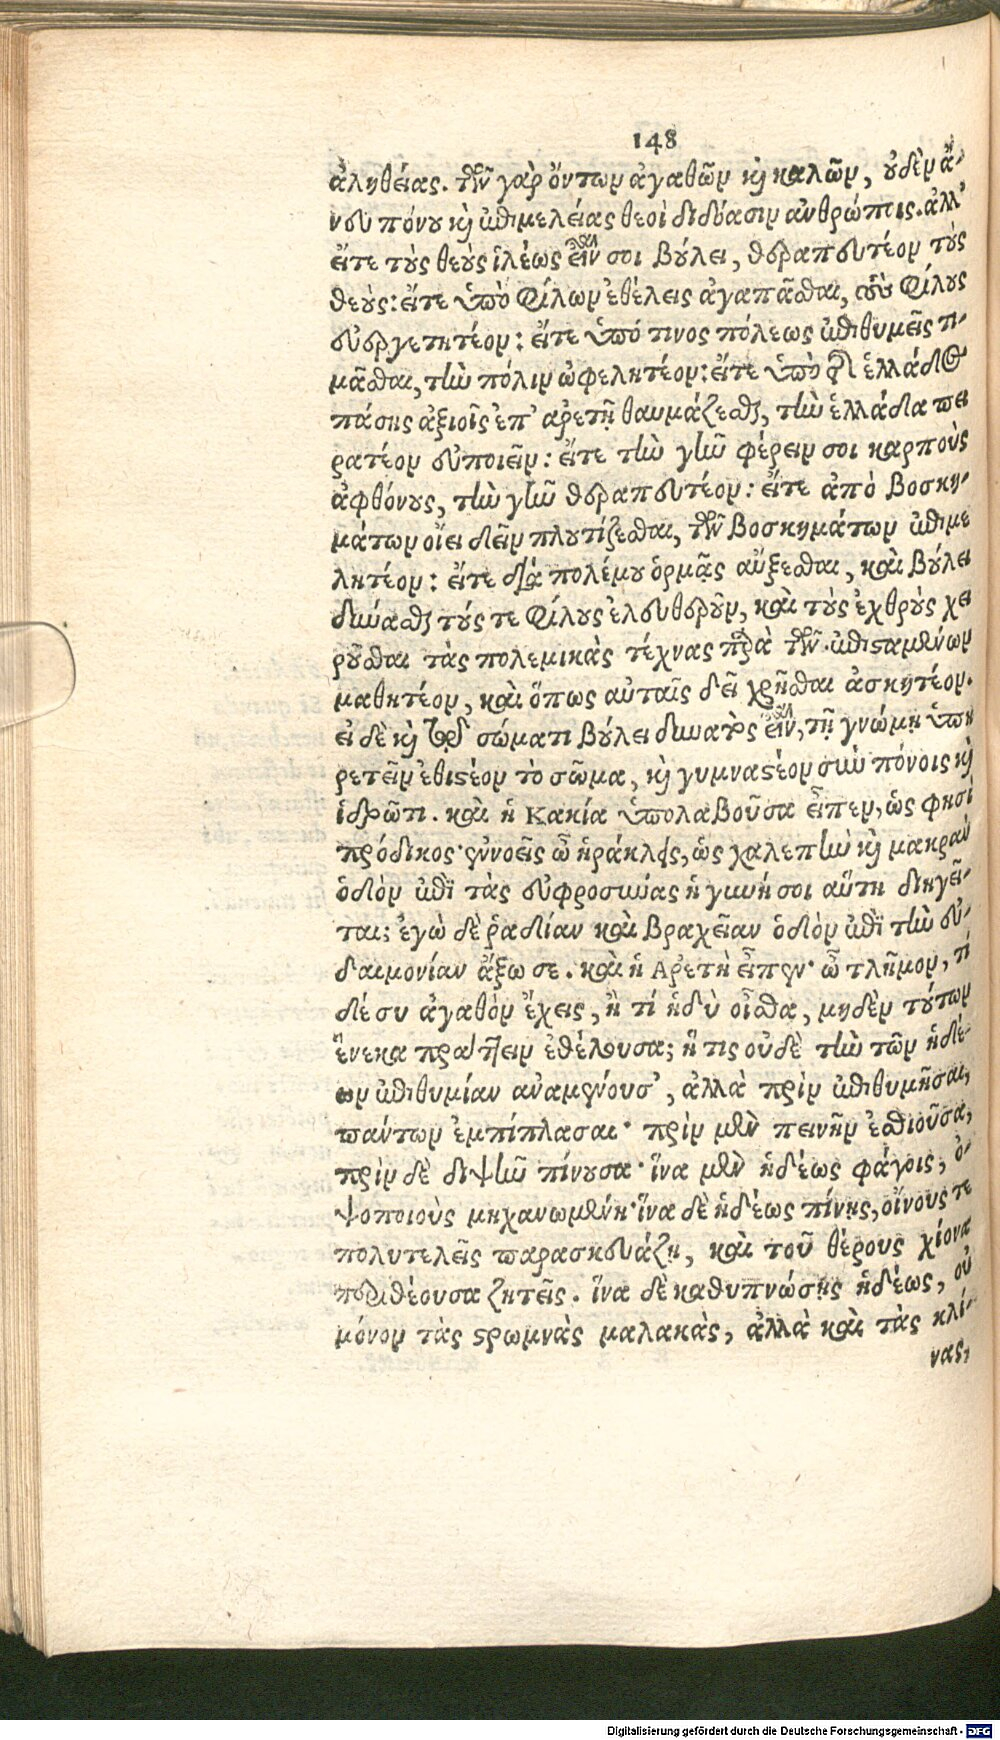 148
ἀληθείας. τῶν γὰρ ὄντων ἀγαθῶν καὶ καλῶν, οὐδὲν ἄ-
νευ πόνου καὶ ἐπιμελείας θεοὶ διδόασιν ἀνθρώποις. ἀλλ'
εἴτε τοὺς θεοὺς ἱλέως εἶναι σοι βούλει, θεραπευτέον τοὺς
θεούς: εἴτε ὑπὸ φίλων ἐθέλεις ἀγαπᾶσθαι, τοὺς φίλους
εὐεργετητέον: εἴτε ὑπό τινος πόλεως ἐπιθυμεῖς τι-
μᾶσθαι, τὴν πόλιν ὠφελητέον: εἴτε ὑπὸ τῆς ἑλλάδος
πάσης ἀξιοῖς ἐπ' ἀρετῇ θαυμάζεσθαι, τὴν ἑλλάδα πει
ρατέον εὐποιεῖν: εἴτε τὴν γῆν φέρειν σοι καρποὺς
ἀφθόνους, τὴν γῆν θεραπευτέον: εἴτε ἀπὸ βοσκη-
μάτων οἴει δεῖν πλουτίζεσθαι, τῶν βοσκημάτων ἐπιμε
λητέον: εἴτε διὰ πολέμου ὁρμᾷς αὔξεσθαι, καὶ βούλει
δύνασθαι τούς τε φίλους ἐλευθεροῦν, καὶ τοὺς ἐχθροὺς χει
ροῦσθαι τὰς πολεμικὰς τέχνας παρὰ τῶν ἐπισταμένων
μαθητέον, καὶ ὅπως αὐταῖς δεῖ χρῆσθαι ἀσκητέον.
εἰ δὲ καὶ τῷ σώματι βούλει δυνατὸς εἶναι, τῇ γνώμῃ ὑπη
ρετεῖν ἐθιστέον τὸ σῶμα, καὶ γυμναστέον σὺν πόνοις καὶ
ἱδρῶτι. καὶ ἡ Κακία ὑπολαβοῦσα εἶπεν, ὡς φησὶ
πρόδικος· ἐννοεῖς ὦ ἡράκλεις, ὡς χαλεπὴν καὶ μακρὰν
ὁδὸν ἐπὶ τὰς εὐφροσύνας ἡ γυνή σοι αὕτη διηγεῖ-
ται; ἐγὼ δὲ ῥαδίαν καὶ βραχεῖαν ὁδὸν ἐπὶ τὴν εὐ-
δαιμονίαν ἄξω σε. καὶ ἡ Ἀρετὴ εἶπεν· ὦ τλῆμον, τί
δέ συ ἀγαθὸν ἔχεις, ἢ τί ἡδὺ οἶσθα, μηδὲν τούτων
ἕνεκα πράττειν ἐθέλουσα; ἥ τις οὐδὲ τὴν τῶν ἡδέ-
ων ἐπιθυμίαν ἀναμένουσ', ἀλλὰ πρὶν ἐπιθυμῆσαι,
πάντων ἐμπίπλασαι· πρὶν μὲν πεινῆν ἐσθιοῦσα,
πρὶν δὲ διψῆν πίνουσα· ἵνα μὲν ἡδέως φάγοις, ὀ-
ψοποιοὺς μηχανωμένη· ἵνα δὲ ἡδέως πίνῃς, οἴνους τε
πολυτελεῖς παρασκευάζῃ, καὶ τοῦ θέρους χίονα
περιθέουσα ζητεῖς. ἵνα δὲ καθυπνώσῃς ἡδέως, οὐ
μόνον τὰς στρωμνὰς μαλακὰς, ἀλλὰ καὶ τὰς κλί-
νας,
Digitalisierung gefördert durch die Deutsche Forschungsgemeinschaft - DFG